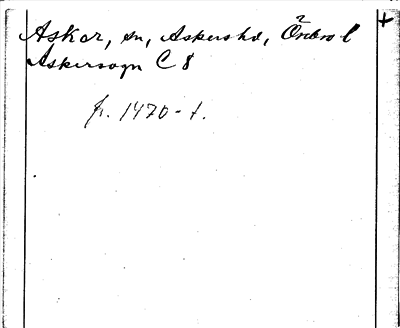 Askar, sn, Askershd, Örebro l +
Askersogn C 8
fr. 1470-t.